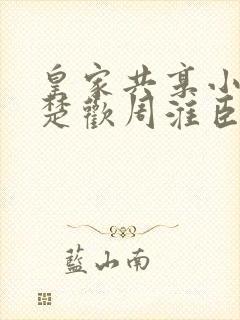 皇家共享小
楚歡周淮臣
藍山南